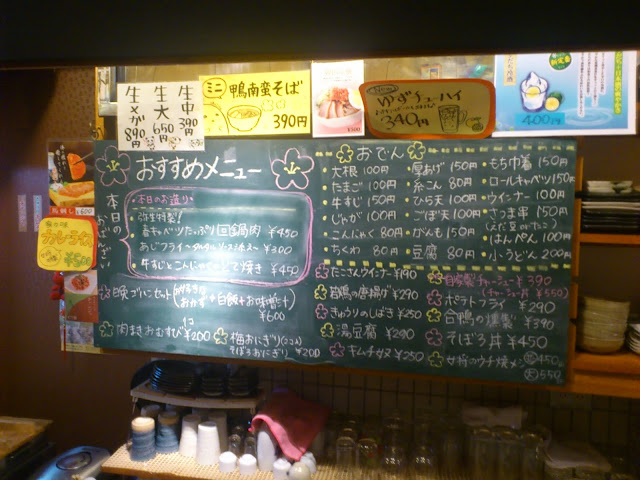 生中 390円
生大 650円
生メガ 890円
ミニ 鴨南蛮そば
390円
ゆずチューハイ
340円
400円
おすすめメニュー
本日の
・本日のお造り
春キャベツたっぷり回鍋肉 ¥450
あじフライ
¥300
牛すじとこんにゃくの
焼き ¥450
おかず+白飯+お味噌汁
¥600
肉まきおむすび 1コ ¥200
梅おにぎり(2コ)
そぼろおにぎり ¥200
おでん
大根 100円
たまご 100円
牛すじ 150円
じゃが 100円
こんにゃく 80円
ちくわ 80円
厚あげ 150円
糸こん 80円
ひら天 100円
ごぼ天 100円
がんも 150円
豆腐 80円
・もち巾着 150円
・ロールキャベツ 150円
・ウインナー 100円
・さつま串 150円
・はんぺん 100円
・小うどん 200円
たこさんウインナー ¥190
若鶏の唐揚げ ¥290
きゅうりのしばき ¥250
湯豆腐 ¥290
キムチダヌ ¥250
自家製チャーシュー ¥390
(チャーシュー丼 ¥550)
ポテトフライ ¥290
合鴨の燻製 ¥390
そぼろ丼 ¥450
女将のウチ焼メシ 450
大 550
カレーライス
¥500